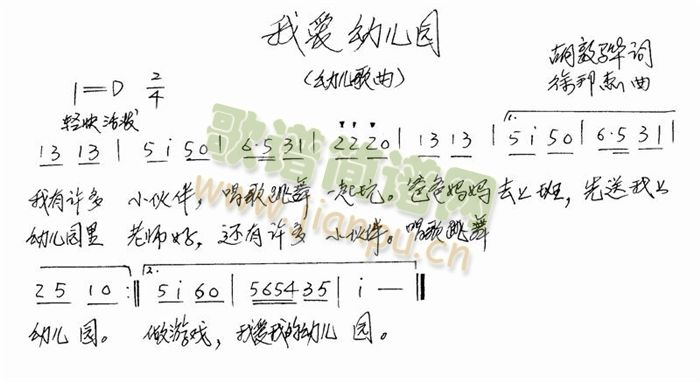 我爱幼儿园
(幼儿歌曲)
胡敦骅词
徐邦杰曲
1=D 2/4
轻快活泼
13 13 | 5 i 50 | 6·5 31 | 2220 | 13 13 | 1. 5 i 50 | 6·5 31 |
我有许多 小伙伴, 唱歌跳舞 一起玩。爸爸妈妈 去上班, 先送我上
幼儿园里 老师好, 还有许多 小伙伴。唱歌跳舞
25 10 :|| 2. 5 i 60 | 5654 35 | i — ||
幼儿园。 做游戏, 我爱我的幼儿 园。
歌谱简谱网
www.jianpu.cn